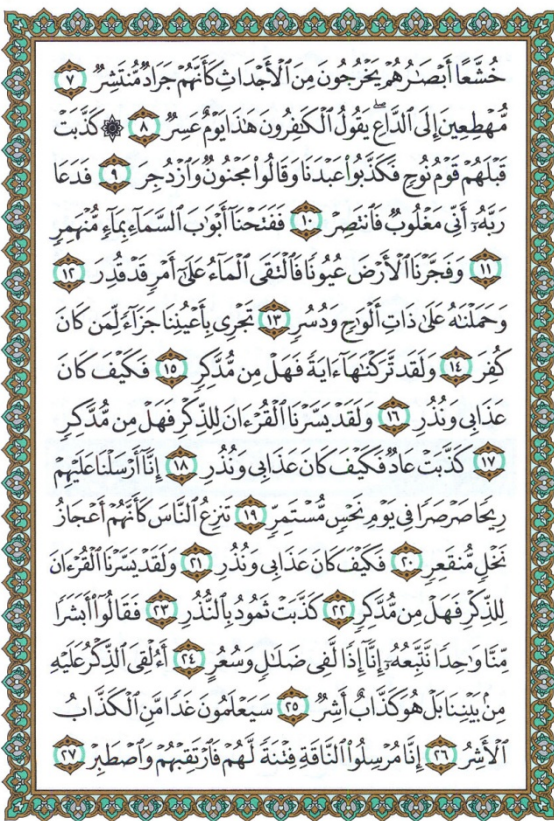 خُشَّعًا أَبْصَٰرُهُمْ يَخْرُجُونَ مِنَ ٱلْأَجْدَاثِ كَأَنَّهُمْ جَرَادٌ مُّنتَشِرٌ ٧
مُّهْطِعِينَ إِلَى ٱلدَّاعِ ۖ يَقُولُ ٱلْكَٰفِرُونَ هَٰذَا يَوْمٌ عَسِرٌ ٨ ۞ كَذَّبَتْ
قَبْلَهُمْ قَوْمُ نُوحٍ فَكَذَّبُوا۟ عَبْدَنَا وَقَالُوا۟ مَجْنُونٌ وَٱزْدُجِرَ ٩ فَدَعَا
رَبَّهُۥٓ أَنِّى مَغْلُوبٌ فَٱنتَصِرْ ١٠ فَفَتَحْنَآ أَبْوَٰبَ ٱلسَّمَآءِ بِمَآءٍ مُّنْهَمِرٍ
١١ وَفَجَّرْنَا ٱلْأَرْضَ عُيُونًا فَٱلْتَقَى ٱلْمَآءُ عَلَىٰٓ أَمْرٍ قَدْ قُدِرَ ١٢
وَحَمَلْنَٰهُ عَلَىٰ ذَاتِ أَلْوَٰحٍ وَدُسُرٍ ١٣ تَجْرِى بِأَعْيُنِنَا جَزَآءً لِّمَن كَانَ
كُفِرَ ١٤ وَلَقَد تَّرَكْنَٰهَآ ءَايَةً فَهَلْ مِن مُّدَّكِرٍ ١٥ فَكَيْفَ كَانَ
عَذَابِى وَنُذُرِ ١٦ وَلَقَدْ يَسَّرْنَا ٱلْقُرْءَانَ لِلذِّكْرِ فَهَلْ مِن مُّدَّكِرٍ
١٧ كَذَّبَتْ عَادٌ فَكَيْفَ كَانَ عَذَابِى وَنُذُرِ ١٨ إِنَّآ أَرْسَلْنَا عَلَيْهِمْ
رِيحًا صَرْصَرًا فِى يَوْمِ نَحْسٍ مُّسْتَمِرٍّ ١٩ تَنزِعُ ٱلنَّاسَ كَأَنَّهُمْ أَعْجَازُ
نَخْلٍ مُّنقَعِرٍ ٢٠ فَكَيْفَ كَانَ عَذَابِى وَنُذُرِ ٢١ وَلَقَدْ يَسَّرْنَا ٱلْقُرْءَانَ
لِلذِّكْرِ فَهَلْ مِن مُّدَّكِرٍ ٢٢ كَذَّبَتْ ثَمُودُ بِٱلنُّذُرِ ٢٣ فَقَالُوٓا۟ أَبَشَرًا
مِّنَّا وَٰحِدًا نَّتَّبِعُهُۥٓ إِنَّآ إِذًا لَّفِى ضَلَٰلٍ وَسُعُرٍ ٢٤ أَءُلْقِىَ ٱلذِّكْرُ عَلَيْهِ
مِنۢ بَيْنِنَا بَلْ هُوَ كَذَّابٌ أَشِرٌ ٢٥ سَيَعْلَمُونَ غَدًا مَّنِ ٱلْكَذَّابُ
ٱلْأَشِرُ ٢٦ إِنَّا مُرْسِلُوا۟ ٱلنَّاقَةِ فِتْنَةً لَّهُمْ فَٱرْتَقِبْهُمْ وَٱصْطَبِرْ ٢٧